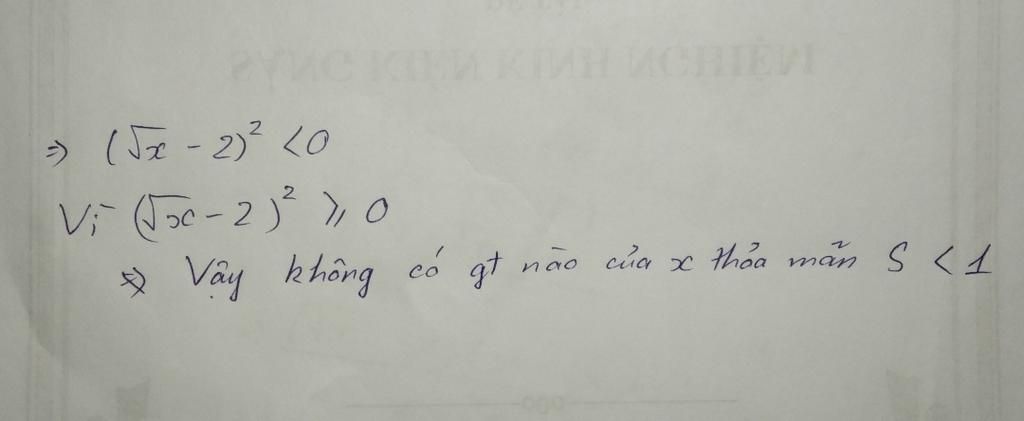 ĐỀ TÀI
SÁNG KIẾN KINH NGHIỆM
=> (√x - 2)² < 0
Vì (√x - 2)² ≥ 0
=> Vậy không có gt nào của x thỏa mãn S < 1